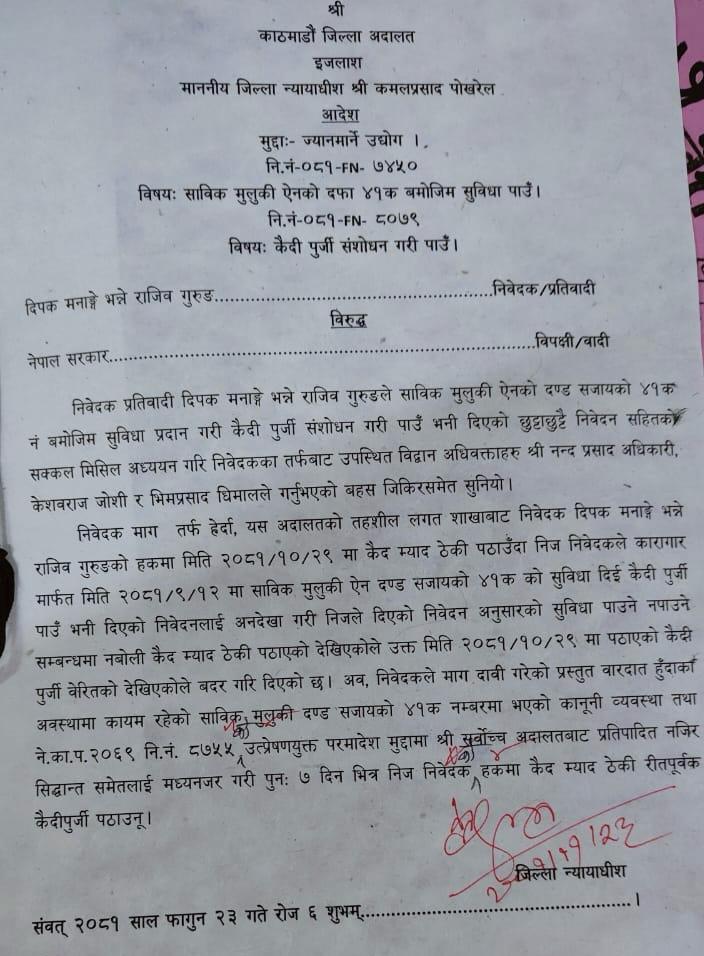 श्री
काठमाडौं जिल्ला अदालत
इजलाश
माननीय जिल्ला न्यायाधीश श्री कमलप्रसाद पोखरेल
आदेश
मुद्दाः- ज्यानमार्ने उद्योग ।
नि.नं-०८१-FN- ७४५०
विषयः साविक मुलुकी ऐनको दफा ४१क बमोजिम सुविधा पाउँ।
नि.नं-०८१-FN- ८०७९
विषयः कैदी पुर्जी संशोधन गरी पाउँ।
दिपक मनाङ्गे भन्ने राजिव गुरुङ......................................................निवेदक/प्रतिवादी
विरुद्ध
नेपाल सरकार......................................................................विपक्षी/वादी
निवेदक प्रतिवादी दिपक मनाङ्गे भन्ने राजिव गुरुङले साविक मुलुकी ऐनको दण्ड सजायको ४१क
नं बमोजिम सुविधा प्रदान गरी कैदी पुर्जी संशोधन गरी पाउँ भनी दिएको छुट्टाछुट्टै निवेदन सहितको
सक्कल मिसिल अध्ययन गरि निवेदकका तर्फबाट उपस्थित विद्वान अधिवक्ताहरु श्री नन्द प्रसाद अधिकारी,
केशवराज जोशी र भिमप्रसाद धिमालले गर्नुभएको बहस जिकिरसमेत सुनियो।
निवेदक माग तर्फ हेर्दा, यस अदालतको तहशील लगत शाखाबाट निवेदक दिपक मनाङ्गे भन्ने
राजिव गुरुङको हकमा मिति २०८१/१०/२९ मा कैद म्याद ठेकी पठाउँदा निज निवेदकले कारागार
मार्फत मिति २०८१/९/१२ मा साविक मुलुकी ऐन दण्ड सजायको ४१क को सुविधा दिई कैदी पुर्जी
पाउँ भनी दिएको निवेदनलाई अनदेखा गरी निजले दिएको निवेदन अनुसारको सुविधा पाउने नपाउने
सम्बन्धमा नबोली कैद म्याद ठेकी पठाएको देखिएकोले उक्त मिति २०८१/१०/२९ मा पठाएको कैदी
पुर्जी वेरितको देखिएकोले बदर गरि दिएको छ। अव, निवेदकले माग दावी गरेको प्रस्तुत वारदात हुँदाका
अवस्थामा कायम रहेको साविक मुलुकी दण्ड सजायको ४१क नम्बरमा भएको कानूनी व्यवस्था तथा
ने.का.प.२०६९ नि.नं. ८७५५ को उत्प्रेषणयुक्त परमादेश मुद्दामा श्री सर्वोच्च अदालतबाट प्रतिपादित नजिर
सिद्धान्त समेतलाई मध्यनजर गरी पुनः ७ दिन भित्र निज निवेदक को हकमा कैद म्याद ठेकी रीतपूर्वक
कैदीपुर्जी पठाउनू।
जिल्ला न्यायाधीश
संवत् २०८१ साल फागुन २३ गते रोज ६ शुभम्......................................................।